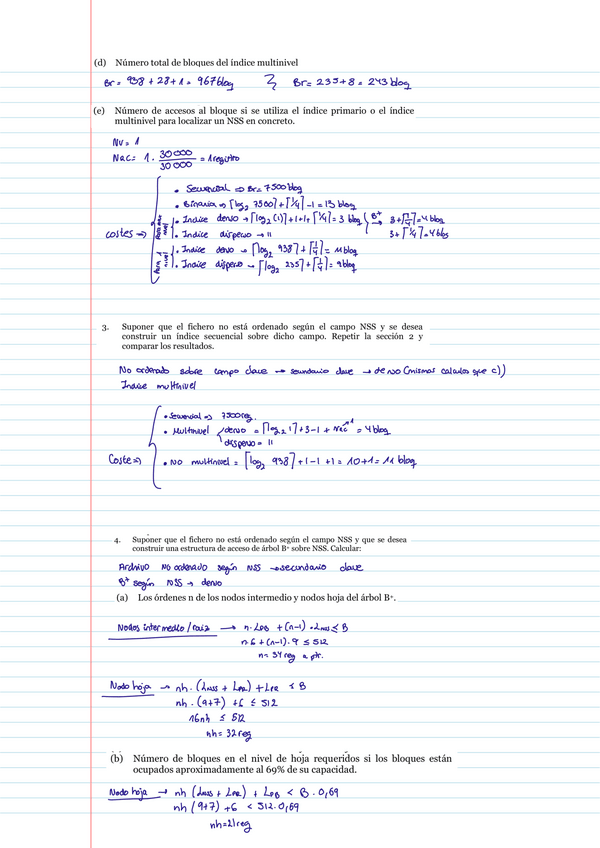 (d) Número total de bloques del índice multinivel
Br = 938 + 28 + 1 = 967 bloq } Br = 235 + 8 = 243 bloq
(e) Número de accesos al bloque si se utiliza el índice primario o el índice
multinivel para localizar un NSS en concreto.
Nv = 1
Nac = 1 · 30000 / 30000 = 1 registro
Costes ⇒
• Secuencial ⇒ Br = 7500 bloq
• Binaria ⇒ ⌈log₂ 7500⌉ + ⌈1/4⌉ - 1 = 13 bloq
• Indice denso → ⌈log₂(1)⌉ + 1 + 1 + ⌈1/4⌉ = 3 bloq } B+ → 3 + ⌈1/4⌉ = 4 bloq
• Indice disperso → 11 3 + ⌈1/4⌉ = 4 bloq
Para 1 nivel
• Indice denso → ⌈log₂ 938⌉ + ⌈1/4⌉ = 11 bloq
• Indice disperso → ⌈log₂ 235⌉ + ⌈1/4⌉ = 9 bloq
3. Suponer que el fichero no está ordenado según el campo NSS y se desea
construir un índice secuencial sobre dicho campo. Repetir la sección 2 y
comparar los resultados.
No ordenado sobre campo clave → secundario clave → denso (mismos calculos que c))
Indice multinivel
Coste ⇒
• Secuencial ⇒ 7500 reg.
• Multinivel denso = ⌈log₂ 1⌉ + 3 - 1 + Nac¹ = 4 bloq
disperso = 11
• No multinivel = ⌈log₂ 938⌉ + 1 - 1 + 1 = 10 + 1 = 11 bloq
4. Suponer que el fichero no está ordenado según el campo NSS y que se desea
construir una estructura de acceso de árbol B+ sobre NSS. Calcular:
Archivo no ordenado según NSS → secundario clave
B+ según NSS → denso
(a) Los órdenes n de los nodos intermedio y nodos hoja del árbol B+.
Nodos intermedio / raiz → n · LPB + (n-1) · LNSS ≤ B
n · 6 + (n-1) · 9 ≤ 512
n = 34 reg o ptr.
Nodo hoja → nh · (LNSS + LPR) + LPR ≤ B
nh · (9+7) + 6 ≤ 512
16nh ≤ 512
nh = 32 reg
(b) Número de bloques en el nivel de hoja requeridos si los bloques están
ocupados aproximadamente al 69% de su capacidad.
Nodo hoja → nh (LNSS + LPR) + LPB < B · 0,69
nh (9+7) + 6 < 512 · 0,69
nh = 21 reg